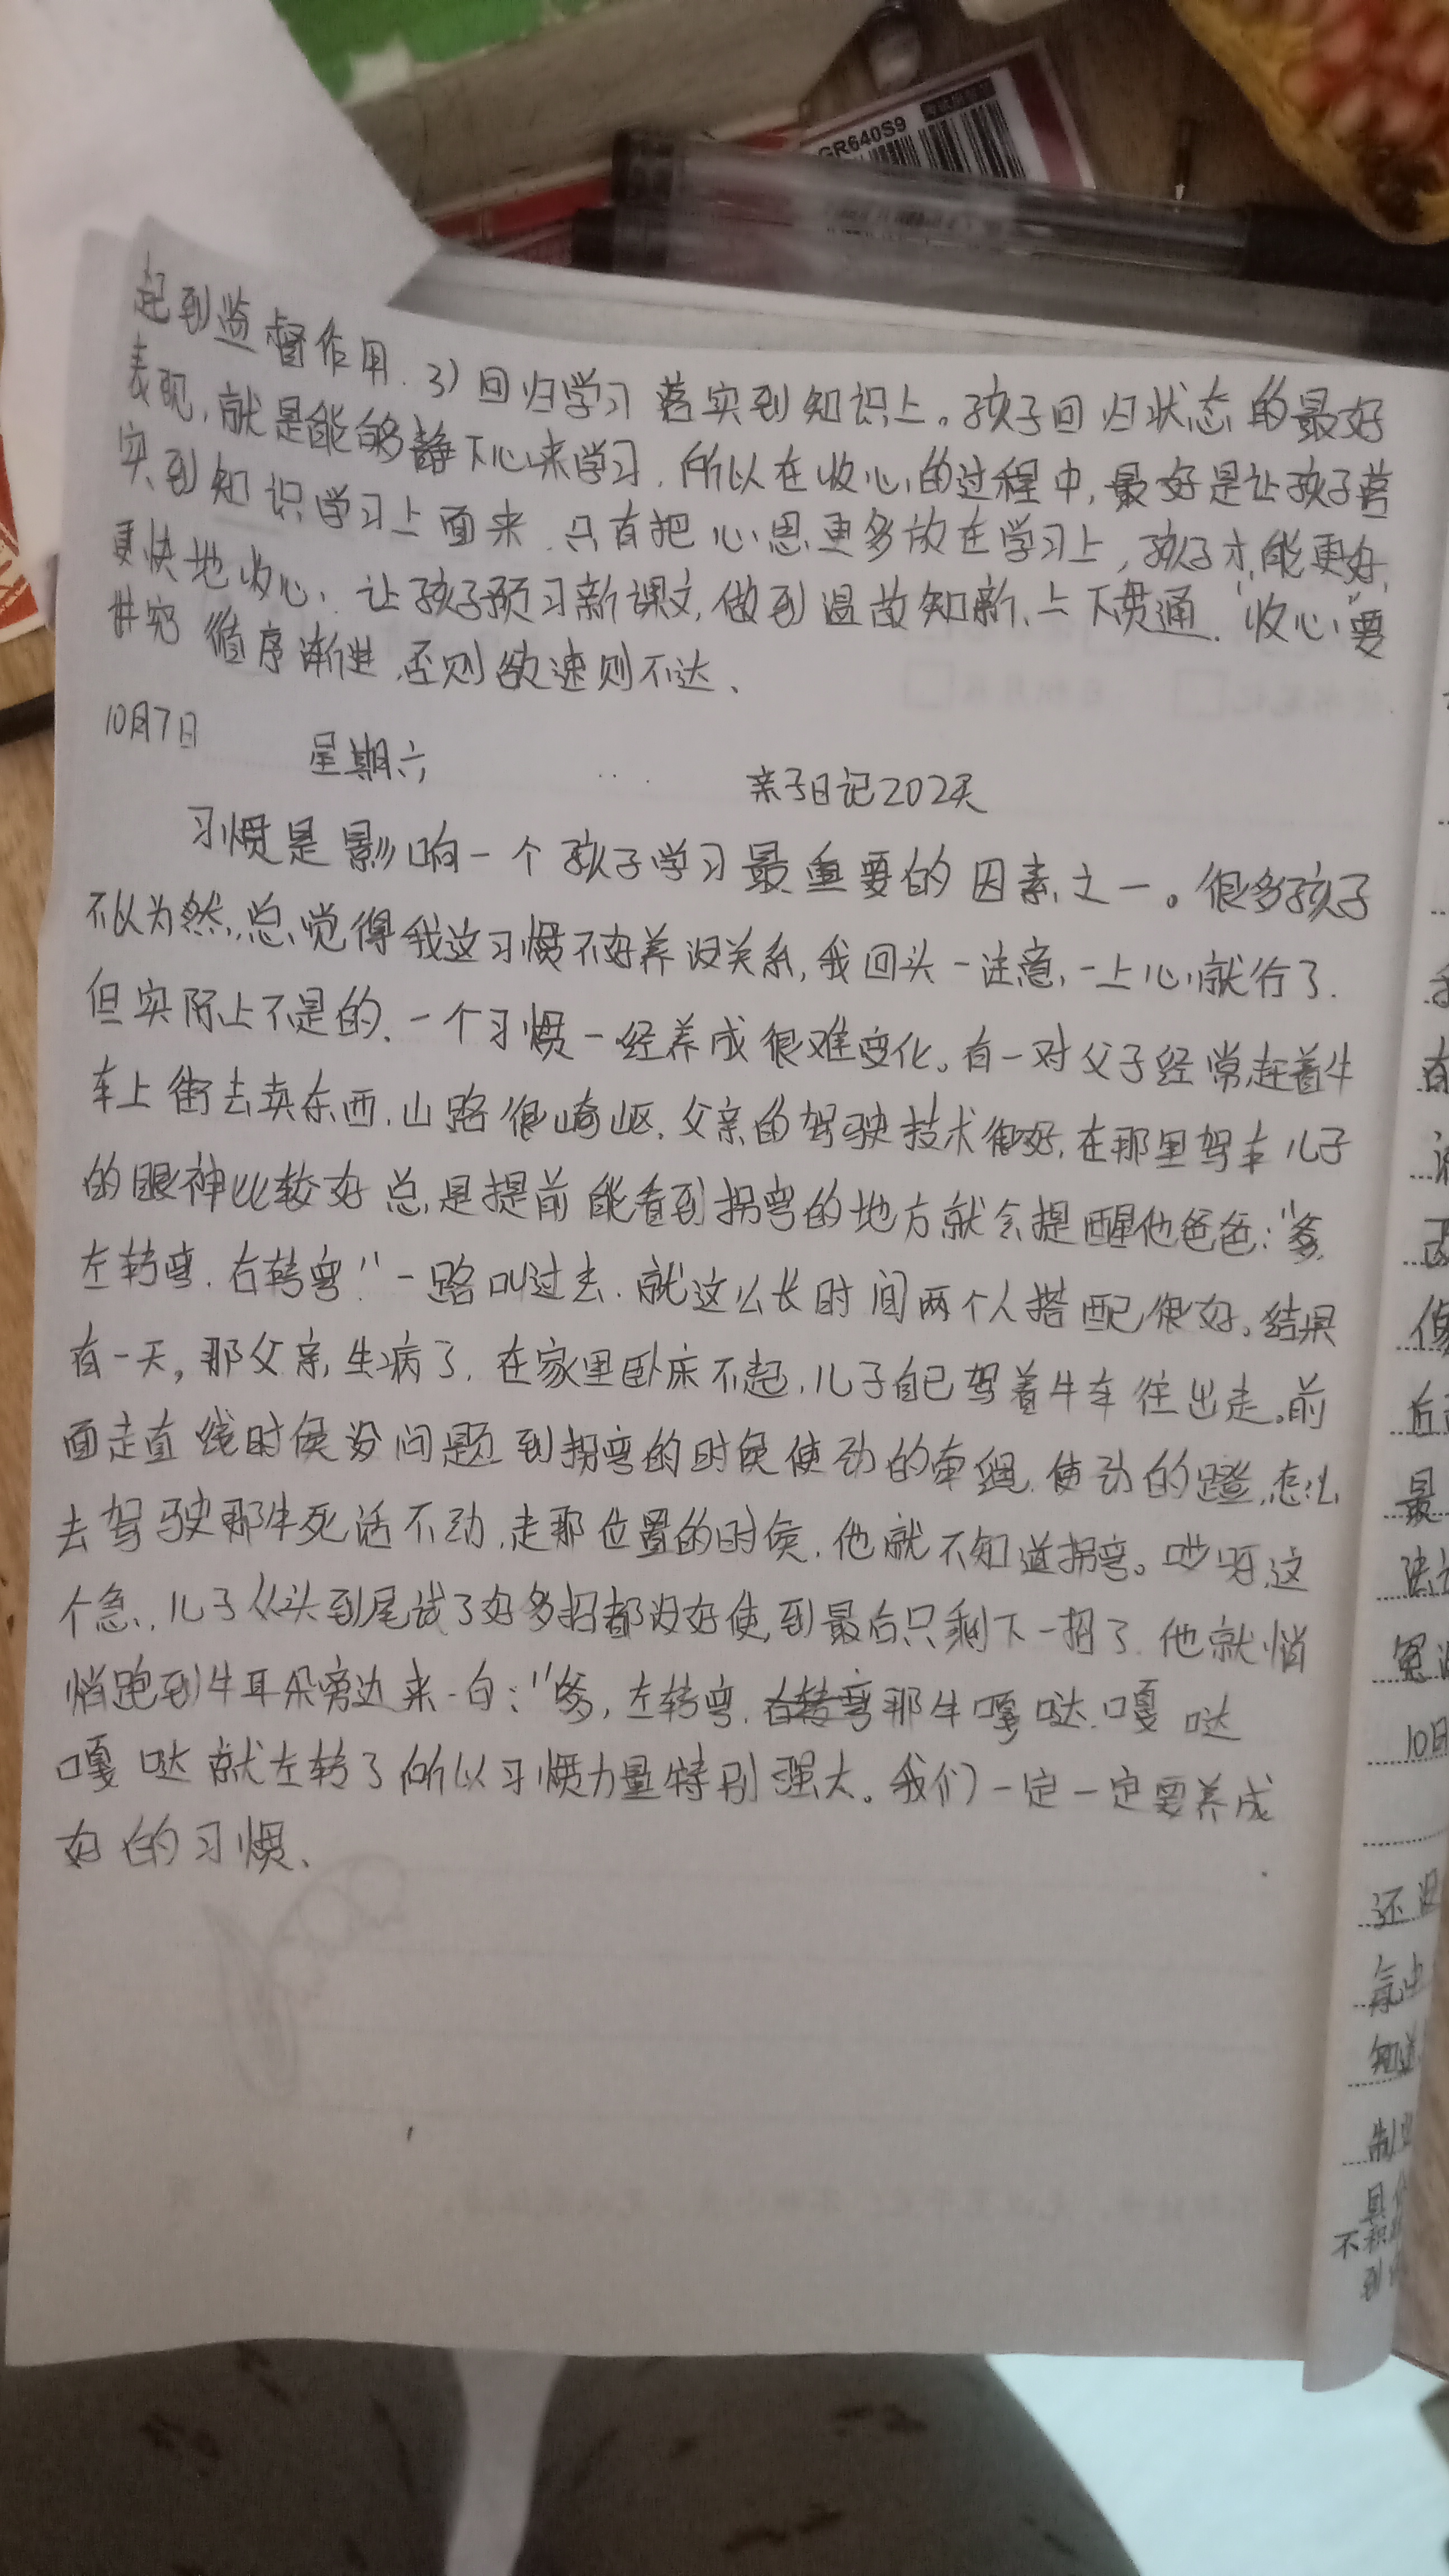 GR640S9
起到监督作用.3)回归学习 落实到知识上。孩子回归状态的最好
表现,就是能够静下心来学习.所以在收心的过程中,最好是让孩子落
实到知识学习上面来.只有把心思更多放在学习上,孩子才能更好,
更快地收心、让孩子预习新课文,做到温故知新、上下贯通.“收心”要
讲究 循序渐进,否则欲速则不达、
10月7日 星期六 亲子日记202天
习惯是影响一个孩子学习最重要的因素之一。很多孩子
不以为然,总觉得我这习惯不好养没关系,我回头一注意,一上心就行了.
但实际上不是的、一个习惯一经养成很难变化。有一对父子经常赶着牛
车上街去卖东西,山路很崎岖.父亲的驾驶技术很好,在那里驾车儿子
的眼神比较好总是提前能看到拐弯的地方就会提醒他爸爸:“爹
左转弯.右转弯!”一路叫过去.就这么长时间两个人搭配很好。结果
有一天,那父亲生病了.在家里卧床不起,儿子自己驾着牛车往出走。前
面走直线时候没问题到拐弯的时候使劲的牵绳.使劲的蹬,怎么
去驾驶那牛死活不动,走那位置的时候.他就不知道拐弯。哎呀,这
个急、儿子从头到尾试了好多招都没好使,到最后只剩下一招了.他就悄
悄跑到牛耳朵旁边来一句:“爹,左转弯.右转弯那牛嘎哒.嘎哒
嘎哒就左转了所以习惯力量特别强大。我们一定一定要养成
好的习惯、
10日
还没
知道
不